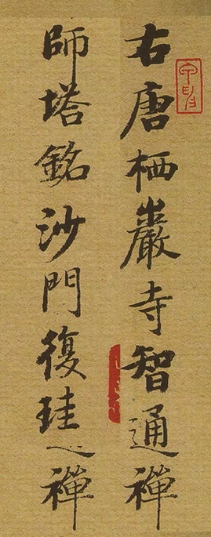 右唐栖巖寺智通禪
師塔銘沙門復珪之禪